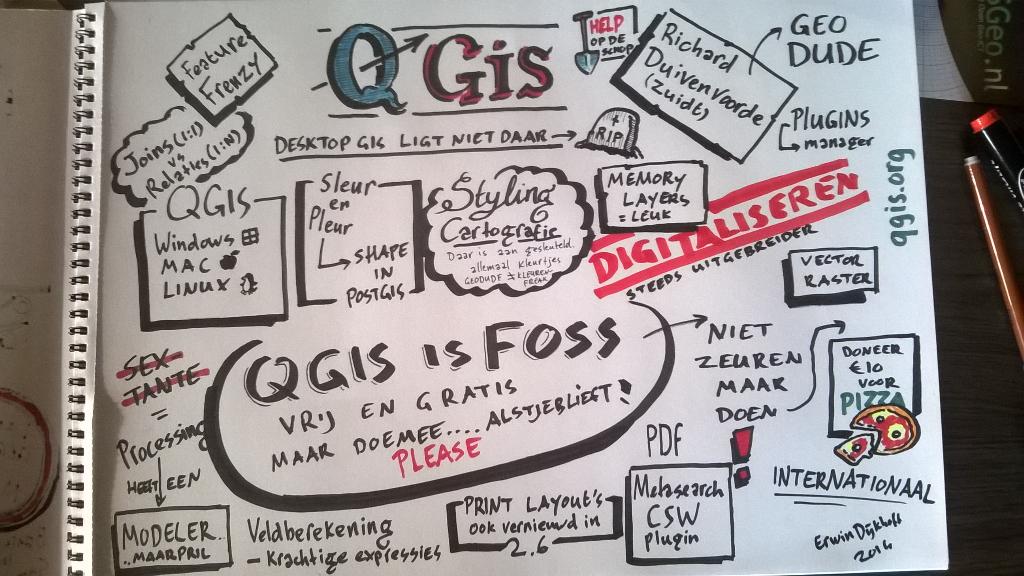 Feature
Frenzy
QGis
HELP
OP DE
SCHOP
Richard
Duivenvoorde
(Zuidt)
GEO
DUDE
DESKTOP GIS LIGT NIET DAAR
RIP
PLUGINS
manager
Joins (1:1)
vs
Relaties (1:N)
QGIS
Windows
MAC
LINUX
Sleur
en
Pleur
SHAPE
IN
POSTGIS
Styling
Cartografie
Daar is aan gesleuteld.
allemaal kleurtjes
GEODUDE
KLEUREN
FREAK
MEMORY
LAYERS
= LEUK
DIGITALISEREN
STEEDS UITGEBREIDER
qgis.org
Geo.nl
VECTOR
RASTER
SEX
TANTE
=
Processing
HEEFT EEN
MODELER..
..MAARPRIL
QGIS IS FOSS
VRIJ EN GRATIS
MAAR DOEMEE.... ALSTJEBLIEFT!
PLEASE
NIET
ZEUREN
MAAR
DOEN
!
DONEER
€10
VOOR
PIZZA
INTERNATIONAAL
PDF
Metasearch
CSW
plugin
PRINT LAYOUT'S
ook vernieuwd in
2.6
Veldberekening
- Krachtige expressies
Erwin Dijkhoff
2014